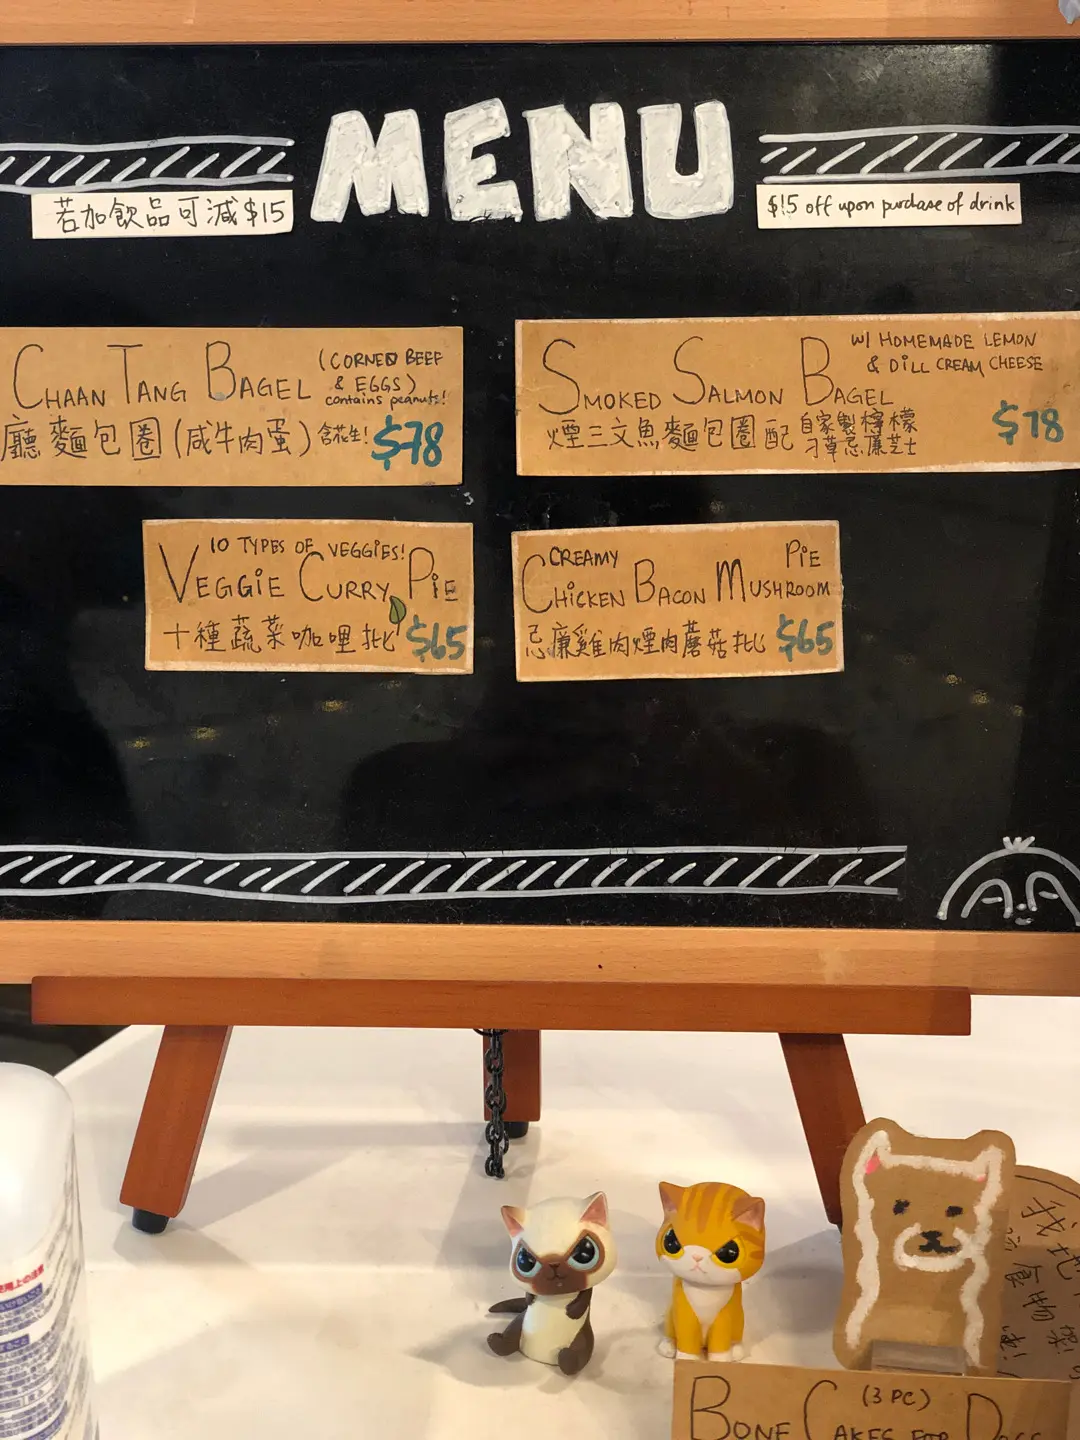 MENU
若加飲品可減$15
$15 off upon purchase of drink
CHAAN TANG BAGEL (CORNED BEEF
& EGGS)
contains peanuts!
廳麵包圈(咸牛肉蛋)含花生! $78
SMOKED SALMON BAGEL W/ HOMEMADE LEMON
& DILL CREAM CHEESE
煙三文魚麵包圈配 自家製檸檬
刁草忌廉芝士
$78
10 TYPES OF VEGGIES!
VEGGIE CURRY PIE
十種蔬菜咖哩批 $65
CREAMY
CHICKEN BACON MUSHROOM PIE
忌廉雞肉煙肉蘑菇批 $65
食物
BONE CAKES FOR DOGS (3 PC)